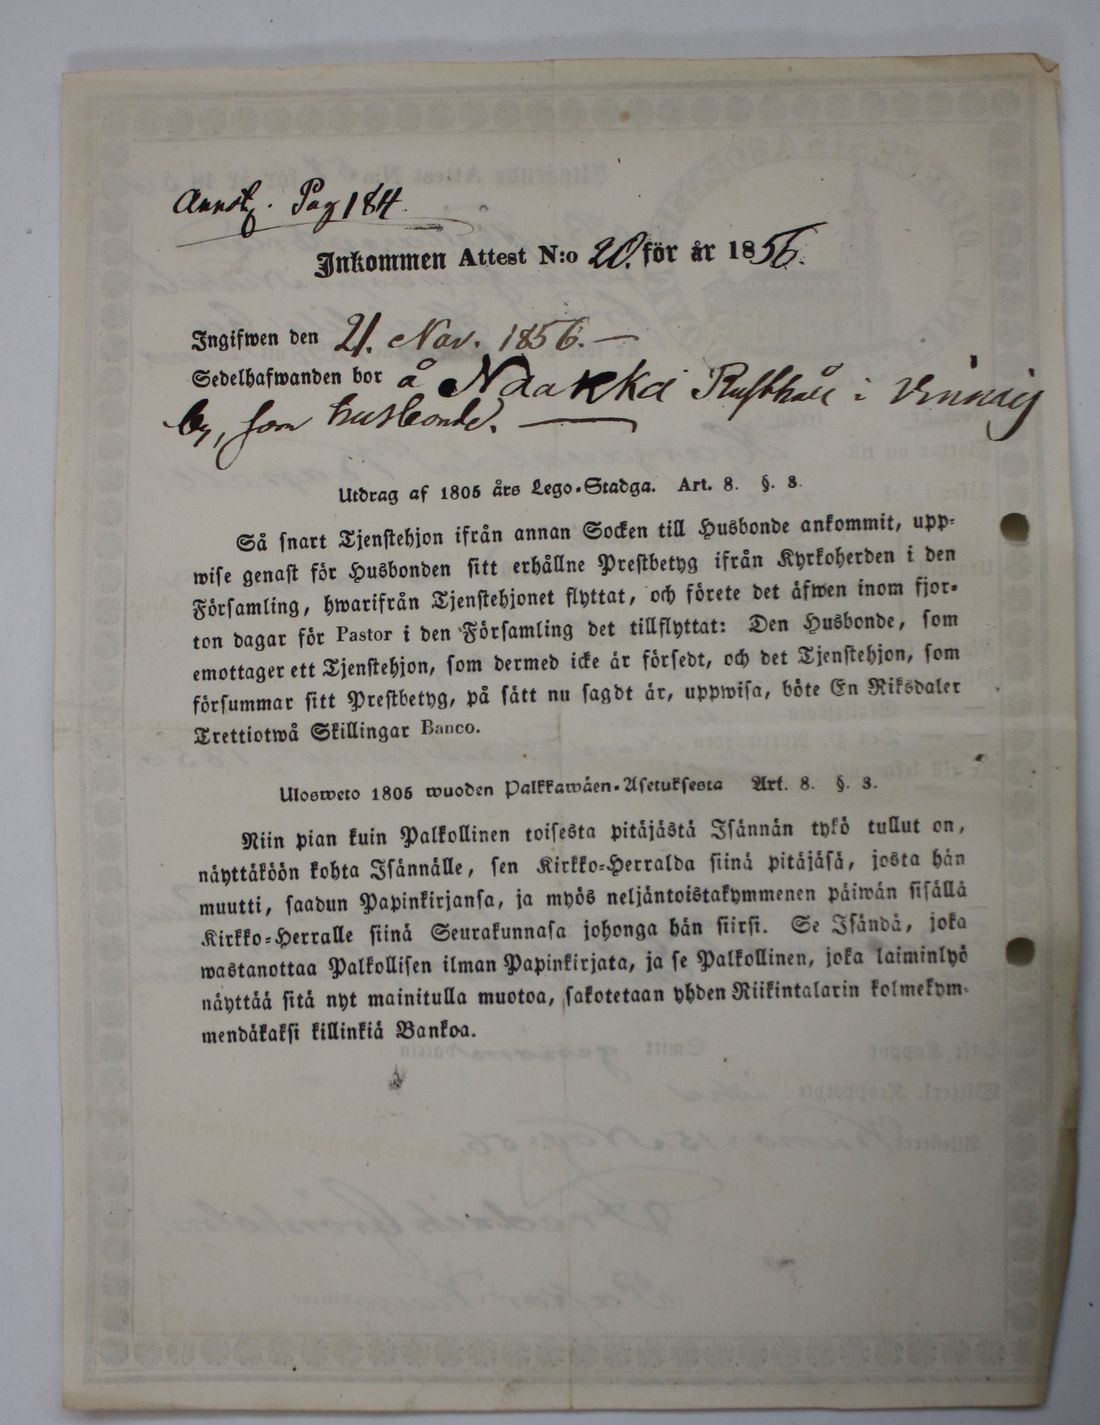 Annot. Pag 184.
Inkommen Attest N:o 20. för år 1856.
Ingifwen den 21. Nov. 1856. —
Sedelhafwanden bor å Naakka Rusthåll i
by, som husbonde. —
Utdrag af 1805 års Lego-Stadga. Art. 8. §. 3.
Så snart Tjenstehjon ifrån annan Socken till Husbonde ankommit, upp-
wise genast för Husbonden sitt erhållne Prestbetyg ifrån Kyrkoherden i den
Församling, hwarifrån Tjenstehjonet flyttat, och förete det äfwen inom fjor-
ton dagar för Pastor i den Församling det tillflyttat: Den Husbonde, som
emottager ett Tjenstehjon, som dermed icke är försedt, och det Tjenstehjon, som
försummar sitt Prestbetyg, på sätt nu sagdt är, uppwisa, böte En Riksdaler
Trettiotwå Skillingar Banco.
Ulosweto 1805 wuoden Palkkawäen-Asetuksesta Art. 8. §. 3.
Niin pian kuin Palkollinen toisesta pitäjästä Isännän tykö tullut on,
näyttäköön kohta Isännälle, sen Kirkko-Herralda siinä pitäjäsä, josta hän
muutti, saadun Papinkirjansa, ja myös neljäntoistakymmenen päiwän sisällä
Kirkko-Herralle siinä Seurakunnasa johonga hän siirsi. Se Isändä, joka
wastanottaa Palkollisen ilman Papinkirjata, ja se Palkollinen, joka laiminlyö
näyttää sitä nyt mainitulla muotoa, sakotetaan yhden Riikintalarin kolmekym-
mendäkaksi killinkiä Bankoa.